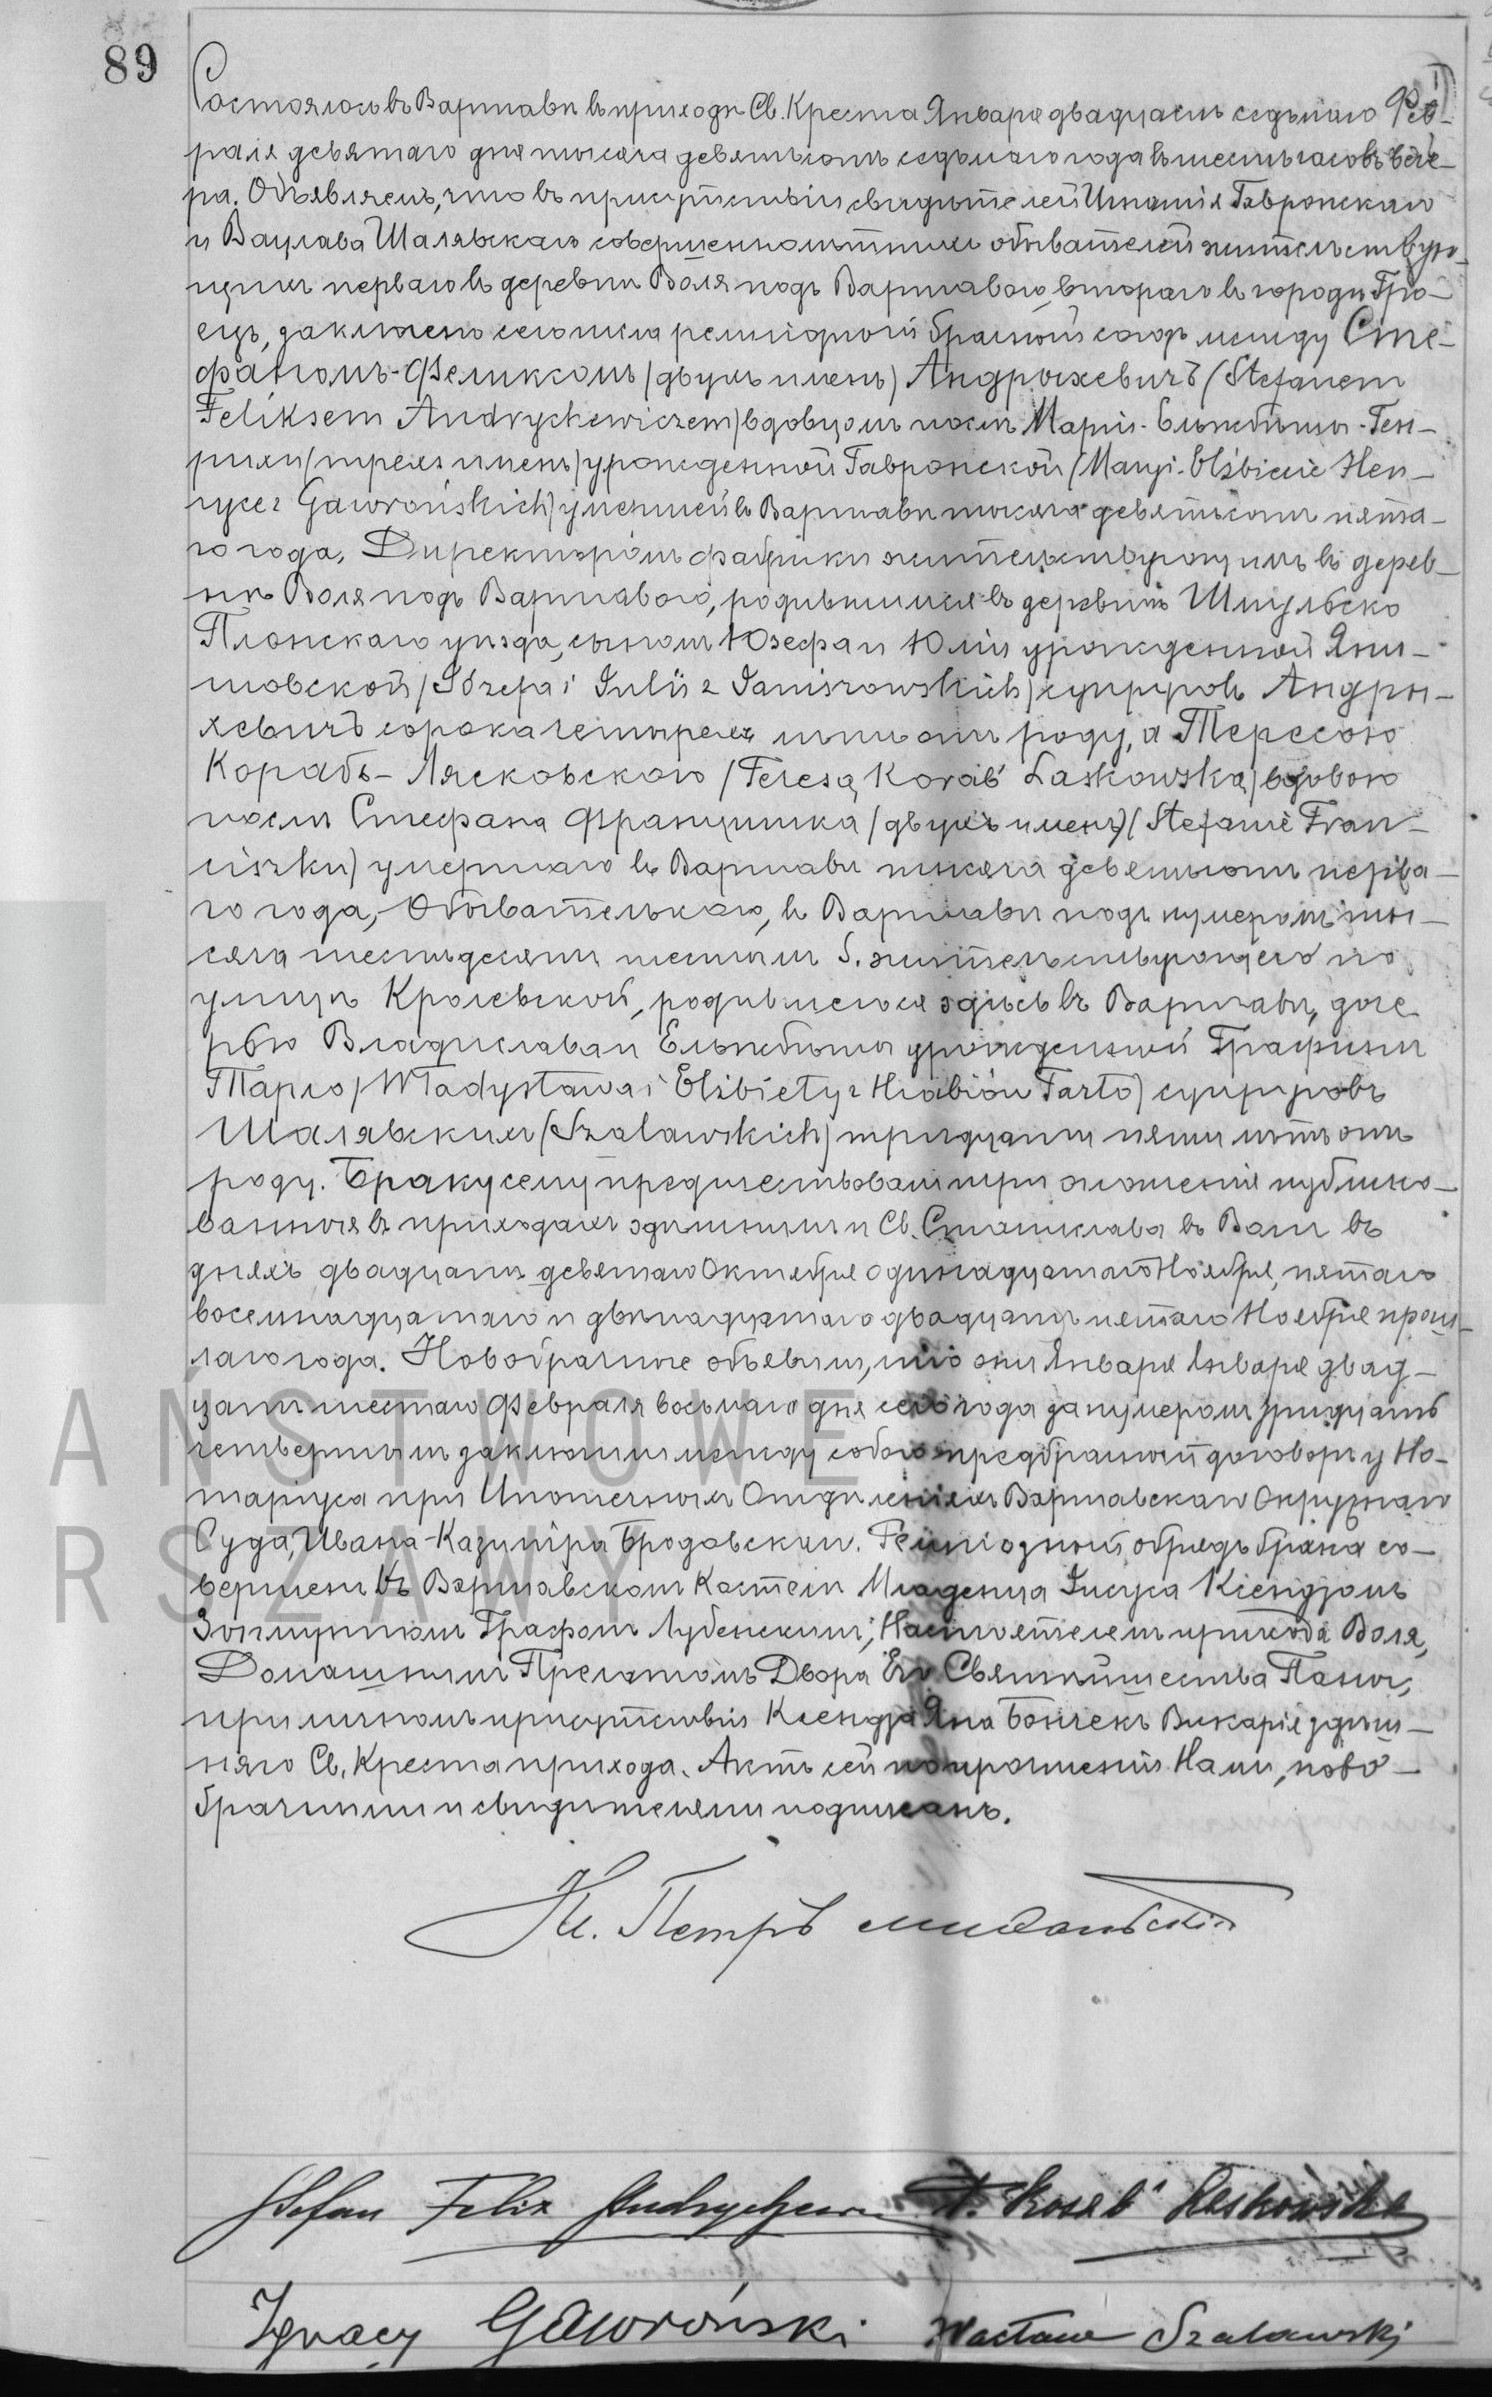 89
Состоялось въ Варшавѣ въ приходѣ Св. Креста Января двадцать седьмаго Фев-
раля девятаго дня тысяча девятьсотъ седьмаго года въ шесть часовъ вече-
ра. Объявляемъ, что въ присутствіи свидѣтелей Игнатія Гавронскаго
и Вацлава Шалявскаго совершеннолѣтнихъ обывателей жительствую-
щихъ перваго въ деревнѣ Воля подъ Варшавою, втораго въ городѣ Гро-
ецъ, заключенъ сего числа религіозный брачный союзъ между Сте-
фаномъ-Феликсомъ (двухъ именъ) Андрыхевичъ (Stefanem
Feliksem Andrychewiczem) вдовцомъ послѣ Маріи-Ельжбеты-Ген-
рики (трехъ именъ) урожденной Гавронской (Maryi-Elżbiecie Hen-
ryce z Gaworońskich) умершей въ Варшавѣ тысяча девятьсотъ пята-
го года, Директоромъ фабрики жительствующимъ въ дерев-
нѣ Воля подъ Варшавою, родившимся въ деревнѣ
Плонскаго уѣзда, сыномъ Юзефа и Юліи урожденной Яни-
шовской (Józefa i Julii z Janiszowskich) супруговъ Андры-
хевичъ сорока четырехъ лѣтъ отъ роду, а Тересою
Корабъ-Лясковскою (Teresą Korab' Laskowską) вдовою
послѣ Стефана Францишка (двухъ именъ) (Stefanie Fran-
ciszku) умершаго въ Варшавѣ тысяча девятьсотъ перва-
го года, Обывательскою, въ Варшавѣ подъ нумеромъ ты-
сяча шестьдесятъ шестымъ б. жительствующею по
улицѣ Кролевской, родившеюся здѣсь въ Варшавѣ, доче-
рью Владислава и Ельжбеты урожденной Графини
Тарло (Władysława i Elżbiety z Hrabiów Tarło) супруговъ
Шалявскихъ (Szalawskich) тридцати пяти лѣтъ отъ
роду. Браку сему предшествовали три оглашенія публико-
ванныя въ приходахъ здѣшнемъ и Св. Станислава въ Воли въ
дняхъ двадцать девятаго Октября одинадцатаго Ноября, пятаго
восемнадцатаго и двѣнадцатаго двадцать пятаго Ноября прош-
лаго года. Новобрачные объявили, что они Января Января двад-
цать шестаго Февраля восьмаго дня сего года за нумеромъ тридцать
четвертымъ заключили между собою предбрачный договоръ у Но-
таріуса при Ипотечномъ Отдѣленіи Варшавскаго Окружнаго
Суда, Ивана-Казиміра Бродовскаго. Религіозный обрядъ брака со-
вершенъ въ Варшавскомъ Костелѣ Младенца Іисуса Ксендзомъ
Зыгмунтомъ Графомъ Лубенскимъ, Настоятелемъ прихода Воля,
Домашнимъ Прелатомъ Двора Его Святѣйшества Папы,
при личномъ присутствіи Ксендза Яна Бончекъ Викарія здѣш-
няго Св. Креста прихода. Актъ сей по прочтеніи Нами, ново-
брачными и свидѣтелями подписанъ.
Кс. Петръ
Stefan Felix Andrychewicz T. Korab' Laskowska
Ignacy Gaworoński Wacław Szalawski
AŃSTWOWE
RSZAWY